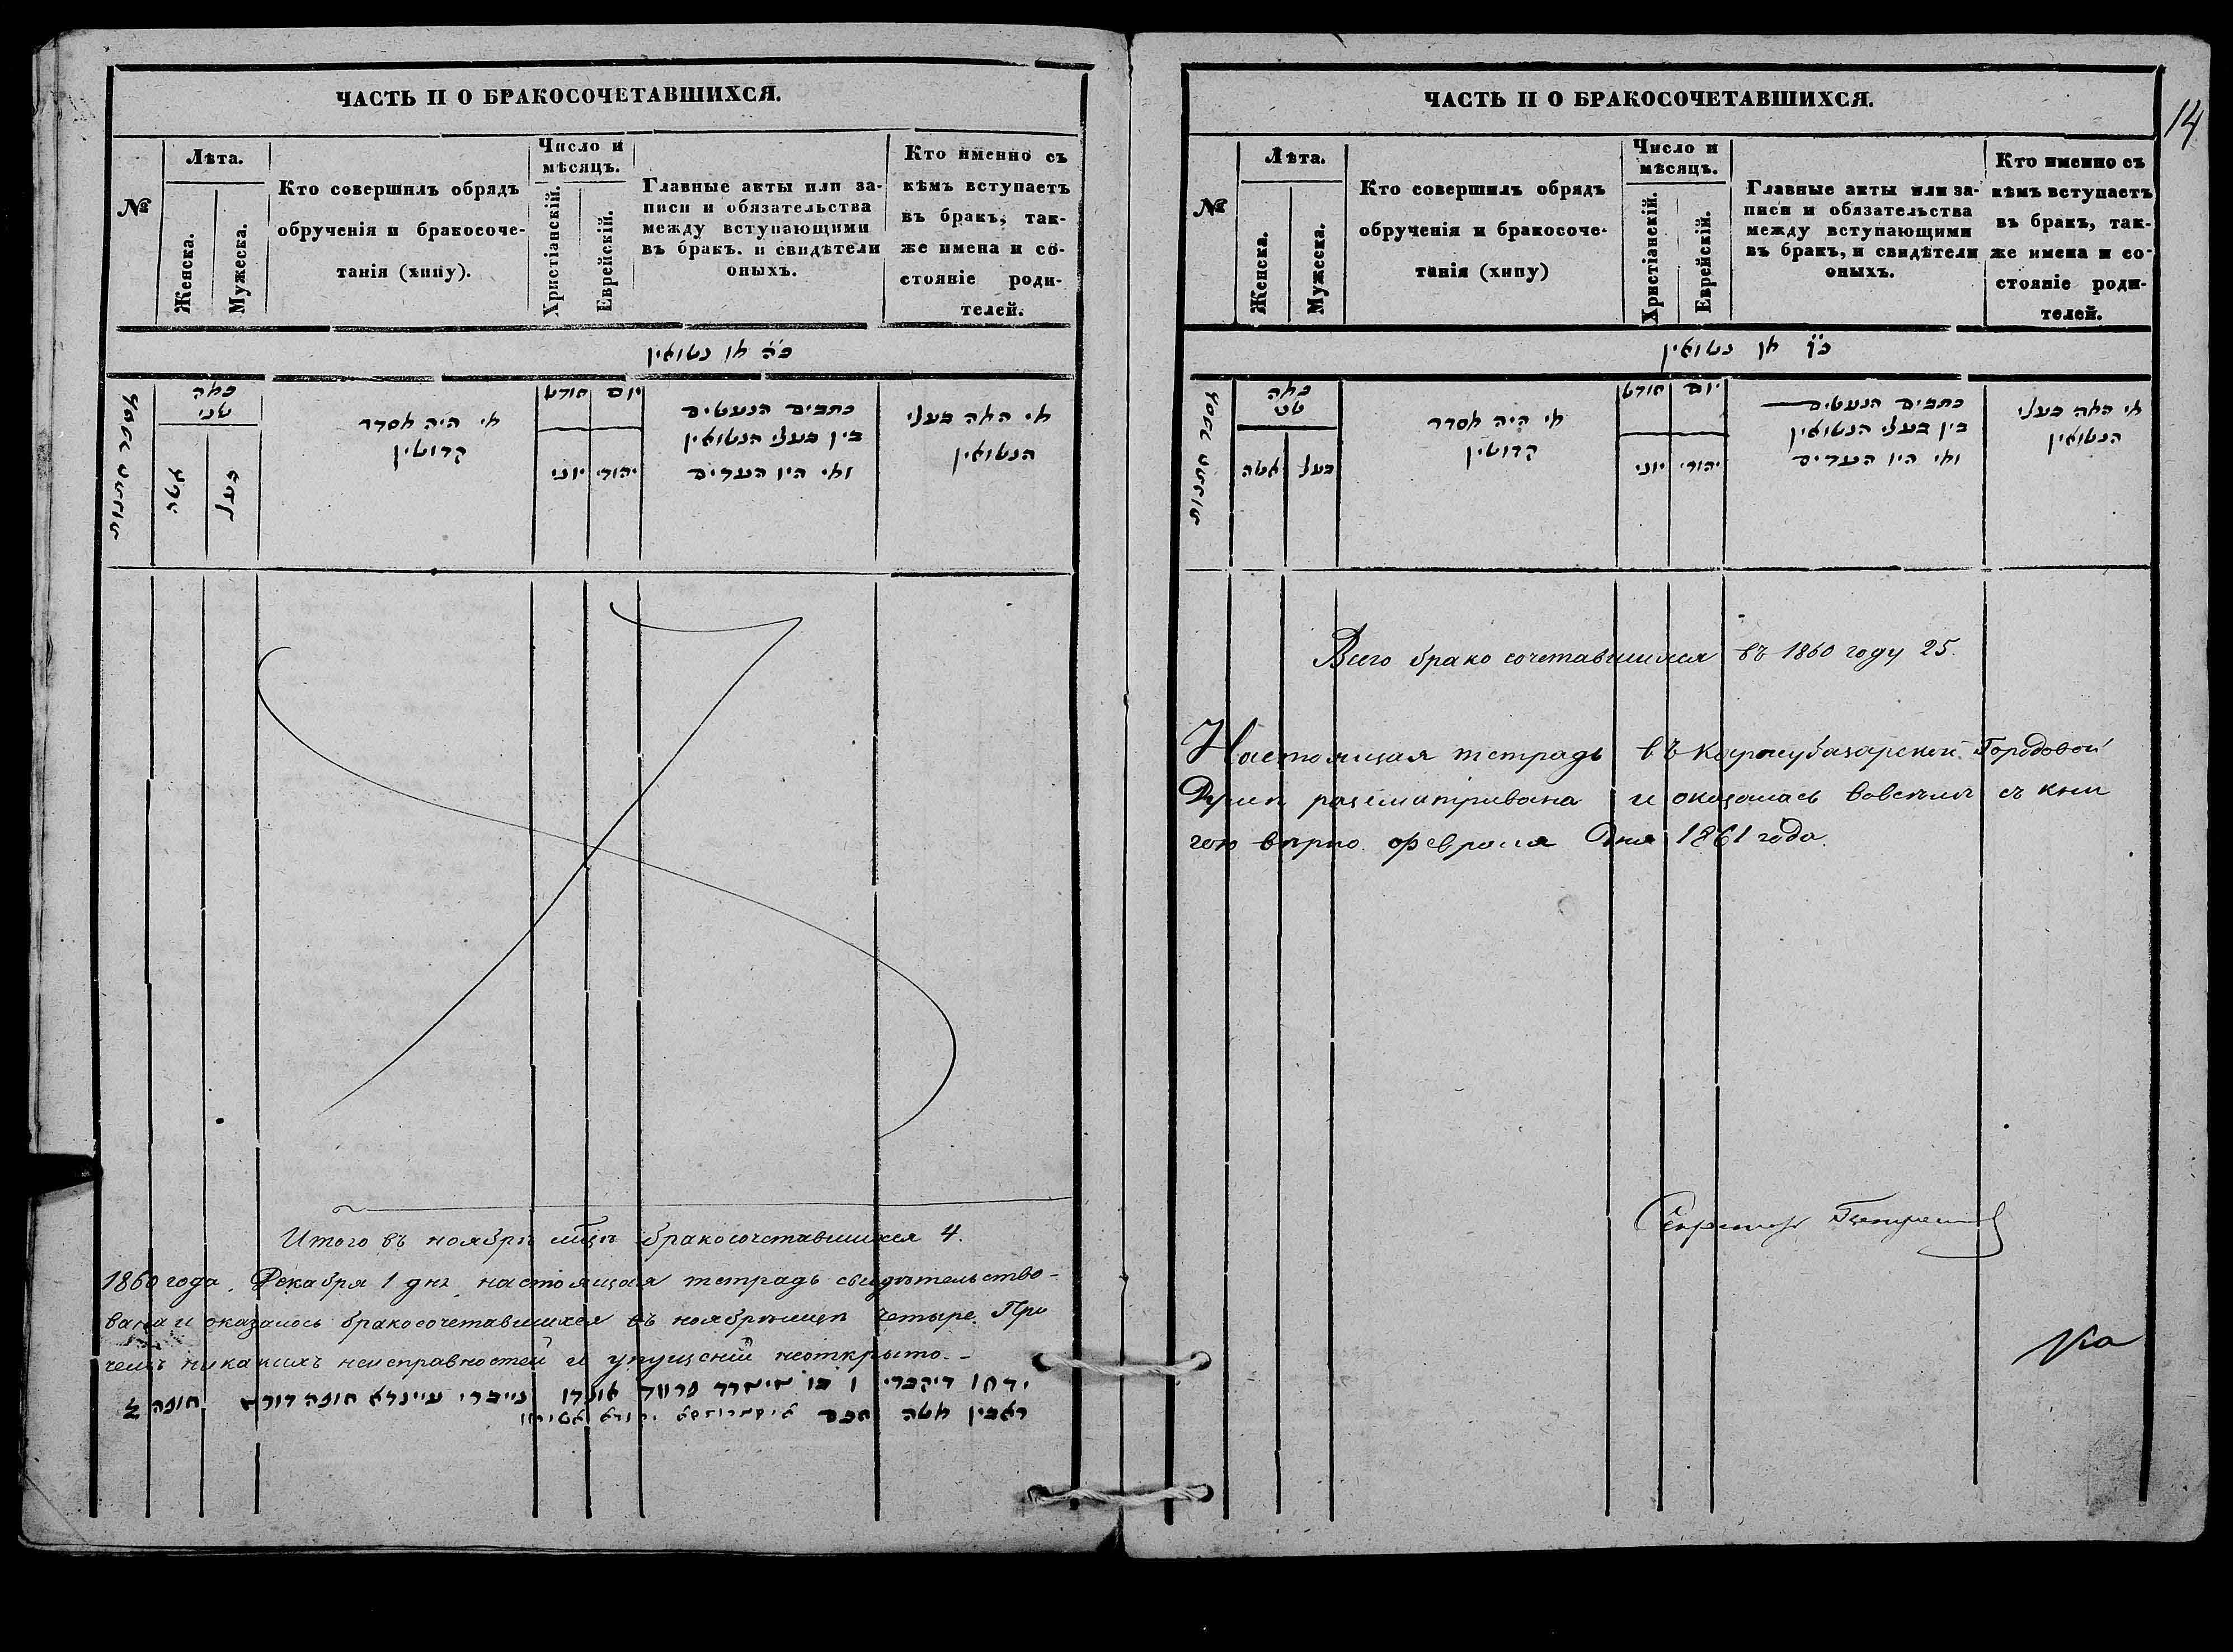 ЧАСТЬ II О БРАКОСОЧЕТАВШИХСЯ.
№
Лѣта.
Женска.
Мужеска.
Кто совершилъ обрядъ
обрученія и бракосоче-
танія (хипу).
Число и
мѣсяцъ.
Христіанскій.
Еврейскій.
Главные акты или за-
писи и обязательства
между вступающими
въ бракъ. и свидѣтели
оныхъ.
Кто именно съ
кѣмъ вступаетъ
въ бракъ, так-
же имена и со-
стояніе роди-
телей.
מי היה מסדר
קדושין
יום
חודש
יהודי
יוני
כתבים הנעשים
בין בעלי הנשואין
ומי היו העדים
מי המה בעלי
הנשואין
Итого въ ноябрѣ мцѣ бракосочетавшихся 4.
1860 года. Декабря 1 дня настоящая тетрадь свидѣтельство-
вана и оказалось бракосочетавшихся въ ноябрѣ мцѣ четыре. При
чемъ никакихъ неисправностей и упущеній неоткрыто.-
ЧАСТЬ II О БРАКОСОЧЕТАВШИХСЯ.
14
№
Лѣта.
Женска.
Мужеска.
Кто совершилъ обрядъ
обрученія и бракосоче-
танія (хипу)
Число и
мѣсяцъ.
Христіанскій.
Еврейскій.
Главные акты или за-
писи и обязательства
между вступающими
въ бракъ, и свидѣтели
оныхъ.
Кто именно съ
кѣмъ вступаетъ
въ бракъ, так-
же имена и со-
стояніе роди-
телей.
מי היה מסדר
קדושין
אשה
בעל
יום
חודש
יהודי
יוני
כתבים הנעשים
בין בעלי הנשואין
ומי היו העדים
מי המה בעלי
הנשואין
Всего бракосочетавшихся въ 1860 году 25.
Настоящая тетрадь въ Карасубазарской Городовой
Думѣ разсматривана и оказалась вовсемъ съ кни
гою вѣрно. февраля дня 1861 года.